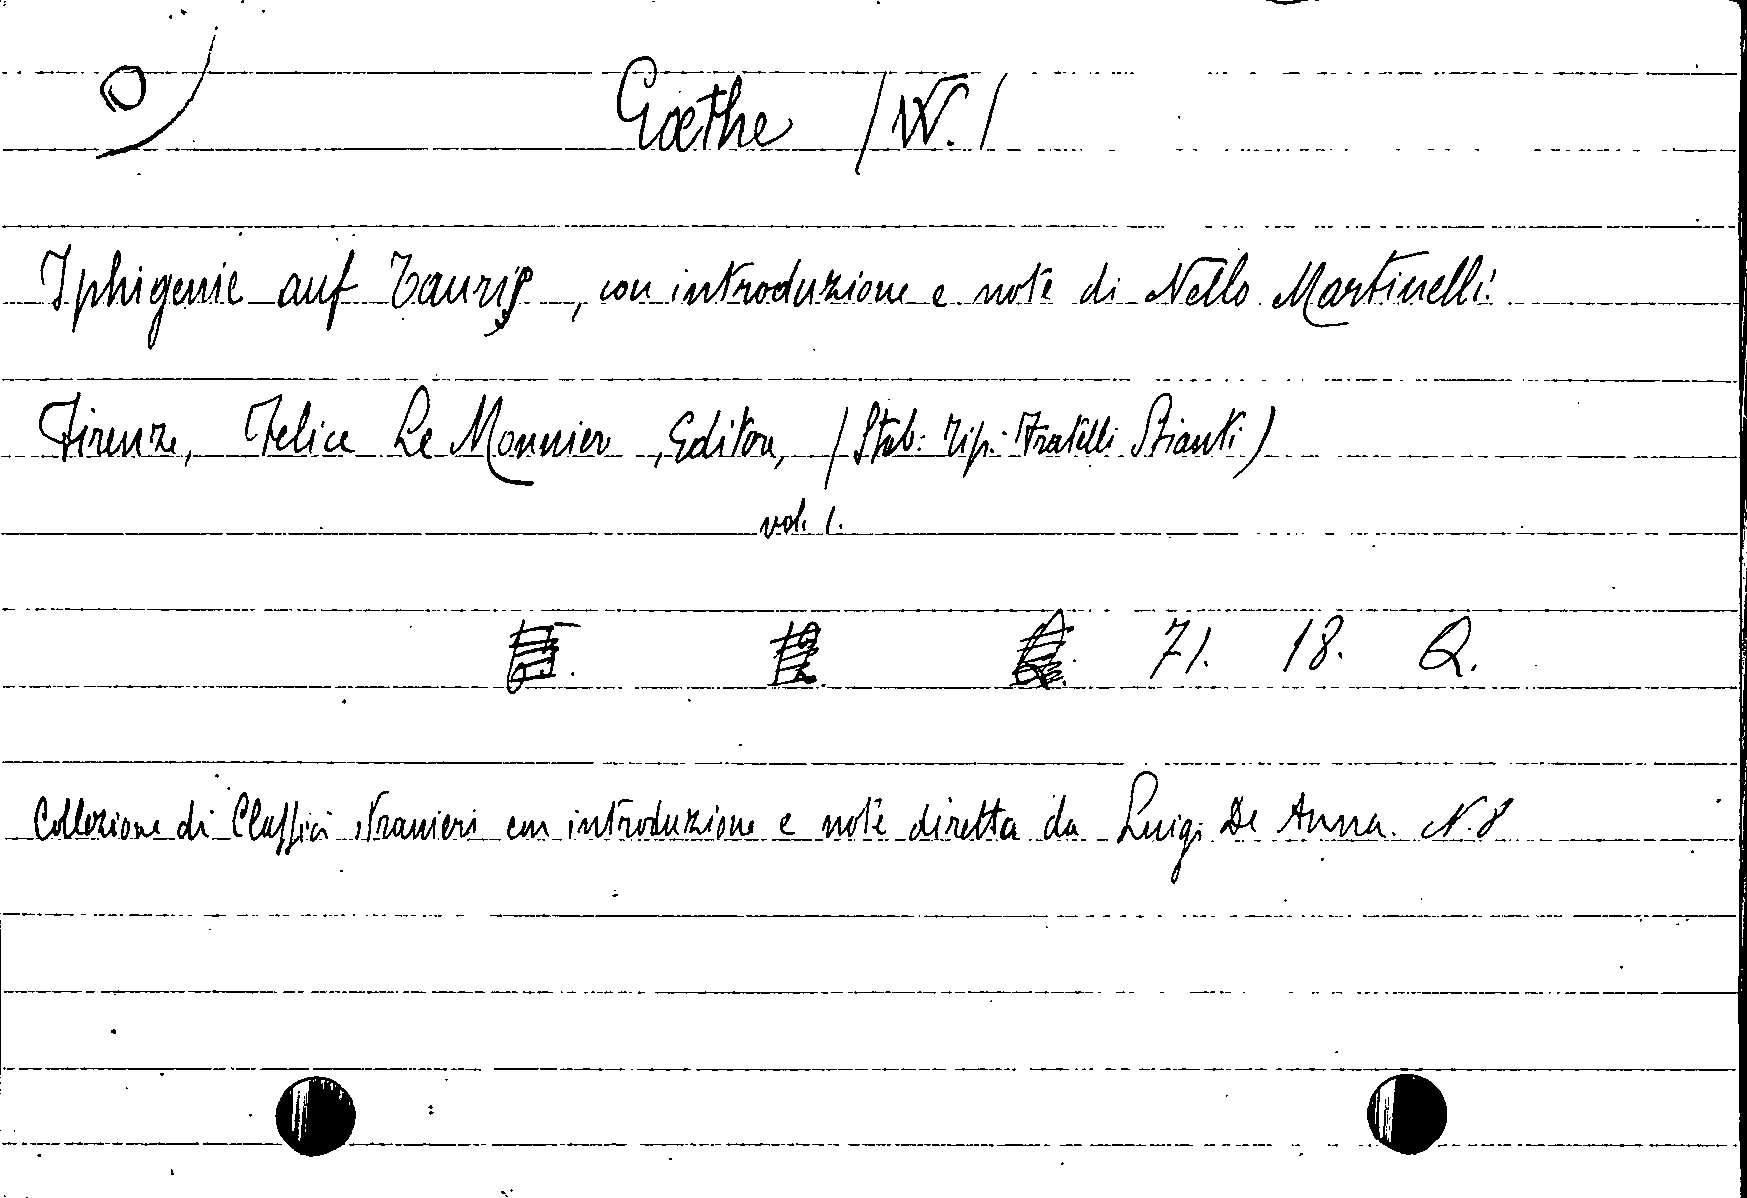 Goethe (W.)
Iphigenie auf Tauris, con introduzione e note di Nello Martinelli.
Firenze, Felice Le Monnier, Editore, (Stab. Tip. Fratelli Stianti)
vol. 1.
71. 18. Q.
Collezione di Classici stranieri con introduzione e note diretta da Luigi De Anna. N. 8